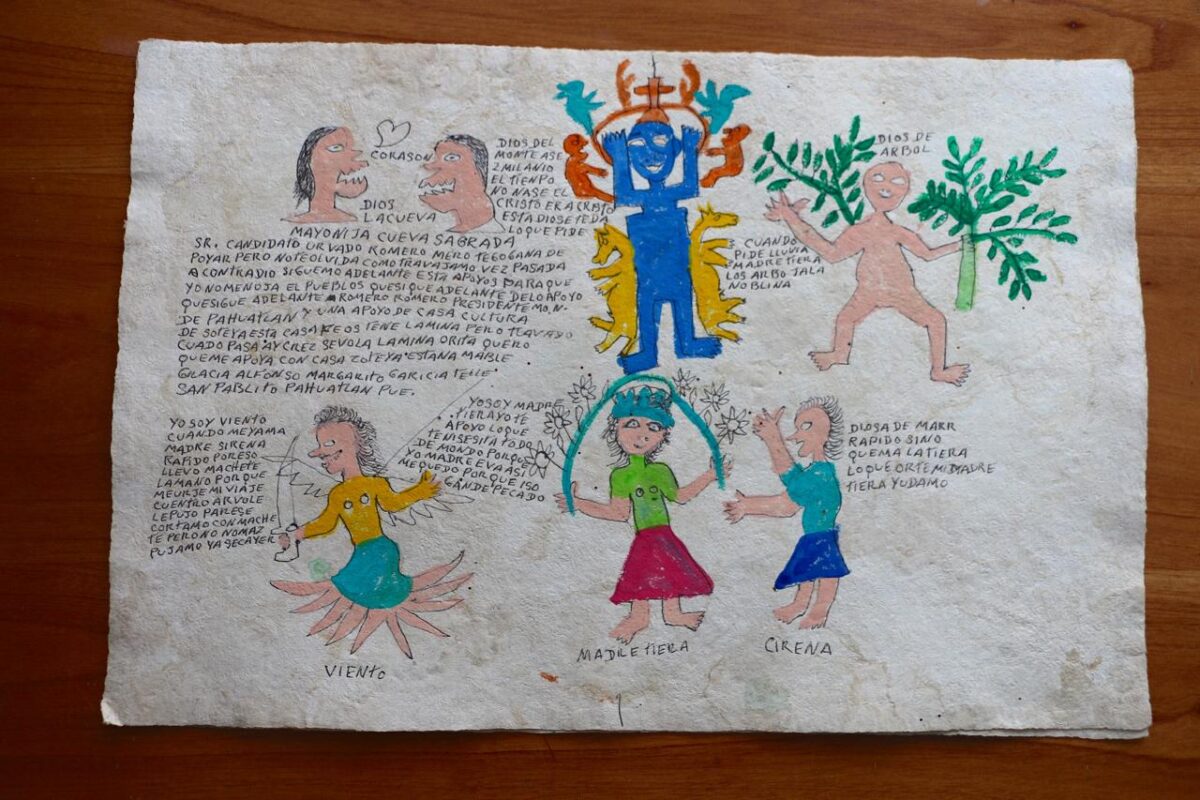 CORASON
DIOS
LACUEVA
DIOS DEL
MONTE ASE
2 MILANIO
EL TIENPO
NO NASE EL
CRISTO ERA CRISTO
ESTA DIOSE TEDA
LO QUE PIDE
DIOS DE
ARBOL
CUANDO
PIDE LLUVIA
MADRE TIERA
LOS ARBO JALA
NOBLINA
MAYONIJA CUEVA SAGRADA
SR. CANDIDATO URVADO ROMERO MERO TEGOGANA DE
POYAR PERO NOTEOLVIDA COMOTRAVAJAMO VEZ PASADA
A CONTRADIO SIGUEMO ADELANTE ESTA APOYOS PARA QUE
YO NOMENOJA EL PUEBLOS QUE SIQUE ADELANTE DELO APOYO
QUESIGUE ADELANTE ROMERO ROMERO PRESIDENTE MON-
DE PAHUATLAN Y UNA APOYO DE CASA CULTURA
DE SOTEYA ESTA CASA TEOS TENE LAMINA PERO TRAVADO
CUADO PASA AY CREZ SEVOLA LAMINA ORITA QUERO
QUEME APOYA CON CASA ZOTEYA ESTANA MABLE
GLACIA ALFONSO MARGARITO GARICIA TELLE
SAN PABLITO PAHUATLAN PUE.
YO SOY VIENTO
CUANDO MEYAMA
MADRE SIRENA
RAPIDO POR ESO
LLEVO MACHETE
LAMANO PORQUE
MEURJE MI VIAJE
CUENTRO ARVOLE
LEPUJO PARESE
CORTAMO CON MACHE
TE PERO NO NOMAZ
PUJAMO YA SECAYER
YO SOY MADRE
TIERA YO TE
APOYO LO QUE
TENISESITA TODO
DE MONDO PORQUE
YO MADRE EVA ASI
MEQUEDO PORQUE ISO
GANDE PECADO
DIOSA DE MARR
RAPIDO SINO
QUEMA LA TIERA
LO QUE ORTE MI MADRE
TIERA YUDAMO
VIENTO
MADRE TIERA
CIRENA